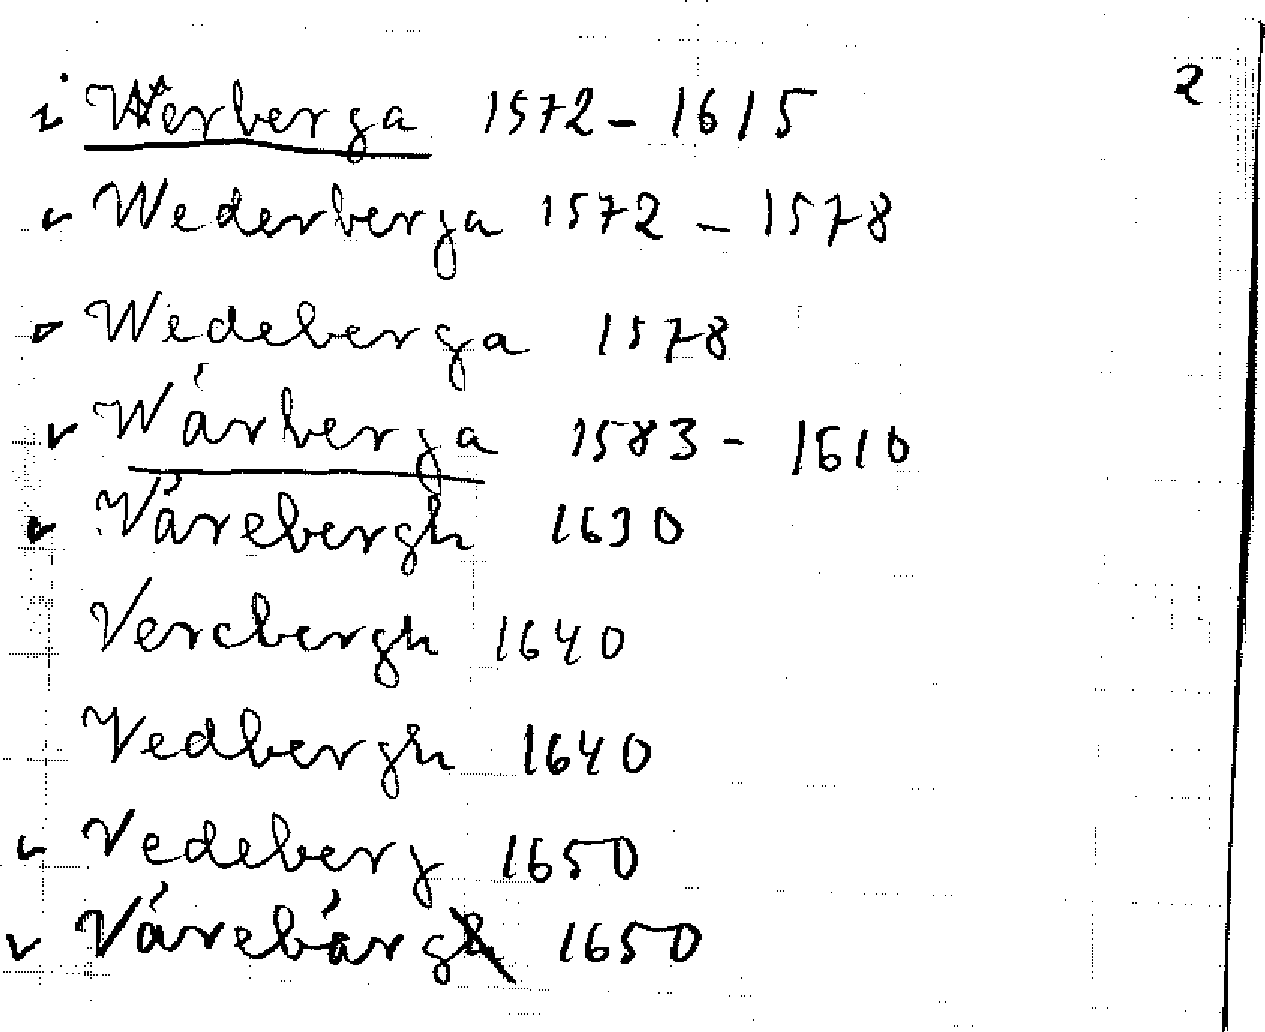 2
Werberga 1572 - 1615
Wederberga 1572 - 1578
Wedeberga 1578
Wárberga 1583 - 1610
Várebergh 1630
Verebergh 1640
Vedbergh 1640
Vedeberg 1650
Várebárg 1650